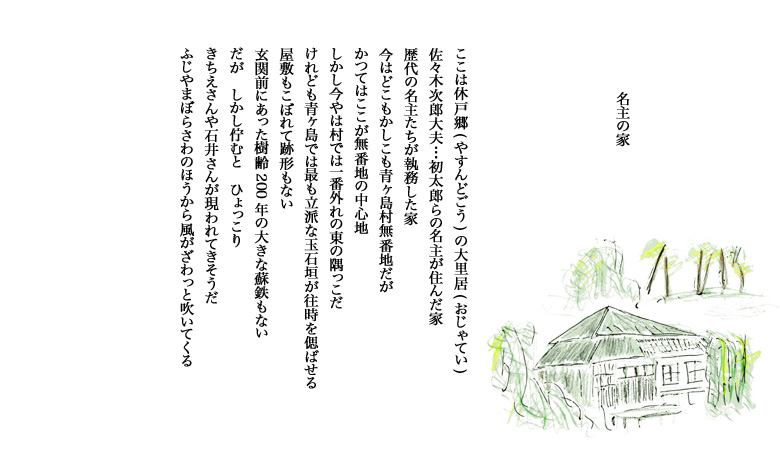 名主の家
ここは休戸郷(やすんどごう)の大里居(おじゃてい)
佐々木次郎大夫…初太郎らの名主が住んだ家
歴代の名主たちが執務した家
今はどこもかしこも青ヶ島村無番地だが
かつてはここが無番地の中心地
しかし今やは村では一番外れの東の隅っこだ
けれども青ヶ島では最も立派な玉石垣が往時を偲ばせる
屋敷もこぼれて跡形もない
玄関前にあった樹齢200年の大きな蘇鉄もない
だが　しかし佇むと　ひょっこり
きちえさんや石井さんが現われてきそうだ
ふじやまぼらさわのほうから風がざわっと吹いてくる